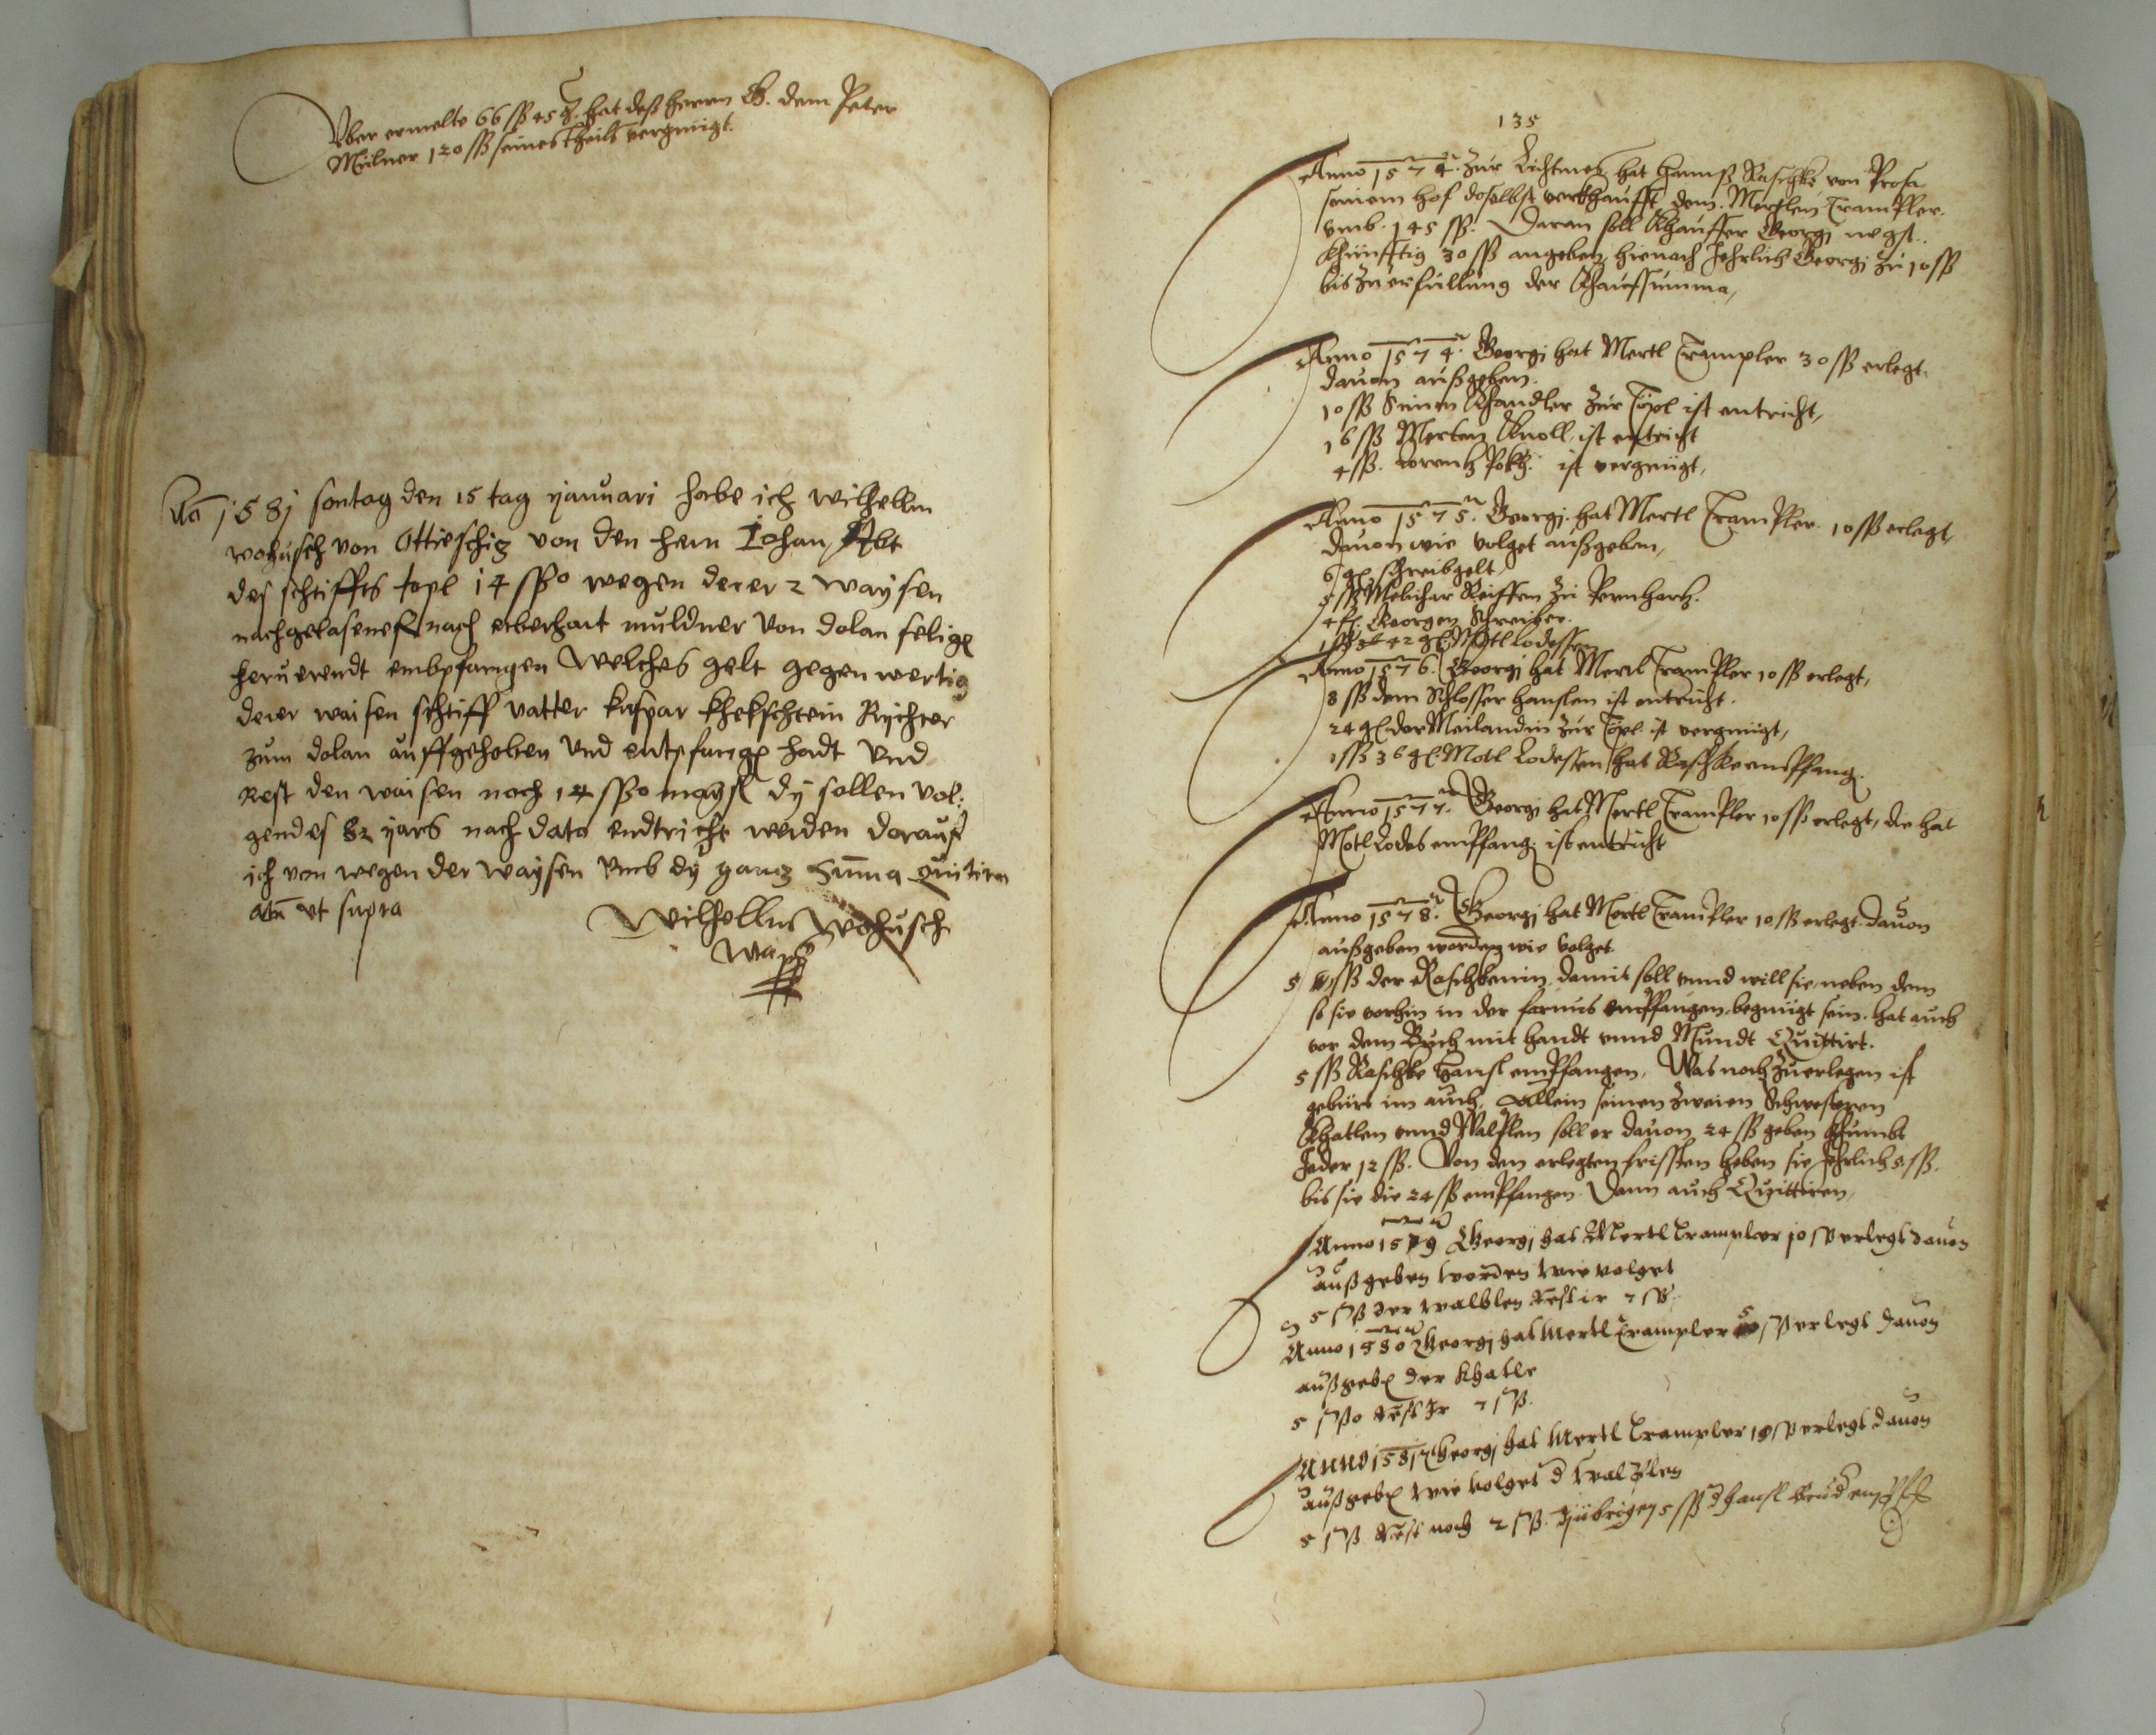 Vber ermelte 66 ſß 45 g. hat deß herrn G. dem Peter
Mülner 120 ſß seines theils vergnügt.
Ao 1581 sontag den 15 tag yanuari habe ich wilhellm
wohusch von Ottieschiz von den hern Iohan Abt
des schtiffts tepl 14 ſßo wegen derer 2 waysen
nachgelasenes nach eberhart muldner von dolan selig
heruerendt embpfangen welches gelt gegen wertig
derer waisen schtiff vatter kaspar khekschtein Rychter
zum dolan auffgehoben vnd entpfang hadt vnd
Rest den waisen noch 14 ſßo dy sollen vol:
gendes 82 yars nach dato endtricht werden darauf
ich von wegen der waysen vmb dy ganz Suma quitirn
atu vt supra
Wilhellm Wohusch
135
Anno 1574. zur Lichtmes hat hannß Raschke von Prosa
seinem hof doselbst verkhaufft dem Mertlein Trampler.
vmb. 145 ſß. Daran soll Khauffer Georgi
khünfftig 30 ſß angeben, hienach Jehrlich Georgi zu 10 ſß
bis zu erfüllung der Khaufsumma,
Anno 1574. Georgi hat Mertl Trampler 30 ſß erlegt.
dauon außgeben.
10 ſß Simon Khandler zur Töpl ist entricht,
16 ſß Merten Knoll, ist entricht
4 ſß. Lorentz ist vergnügt,
Anno 1575. Georgi. hat Mertl Trampler 10 ſß erlegt,
dauon wie volget außgeben,
6 gl schreibgelt,
5 ſß Melichar Reiffen zu Pernhartz.
4 fl. Georgen Schreiber.
42 gl. Motl Lodessen
Anno 1576. Georgi hat Mertl Trampler 10 ſß erlegt,
8 ſß dem Schlosser hanslen ist entricht.
24 gl. der Meilandin zur Töpl ist vergnügt,
1 ſß 36 gl. Motl Lodessen hat Raschke empfang.
Anno 1577. Georgi hat Mertl Trampler 10 ſß erlegt, die hat
Motl Lodes empfang. ist entricht
Anno 1578. Georgi hat Mertl Trampler 10 ſß erlegt. dauon
außgeben worden wie volget.
5 ſß der Raschkenin, damit soll vnnd will sie, neben dem
so sie vorhin in der farnus empfangen, begnügt sein. hat auch
vor dem Buch mit handt vnnd Mundt Quittirt.
5 ſß Raschke Hansl empfangen, Was noch zuerlegen ist
gebürt im auch. Allein seinen zweien Schwestern
Khatlen vnnd Walplen soll er dauon 24 ſß geben khumbt
Jeder 12 ſß. Von den erlegten fristen heben sie Jehrlich 5 ſß.
bis sie die 24 ſß empfangen. Dann auch Quittiren,
Anno 1579 Georgj hat Mertl Trampler 10 ſß erlegt dauon
außgeben worden wie volget
5 ſß der walblen Rest ir 7 ſß.
Anno 1580 Georgj hat Mertl Trampler 5 ſß erlegt dauon
außgeb der khatle
5 ſßo Rest Jr 7 ſß.
Anno 1581 Georgj hat Mertl Trampler 10 ſß erlegt dauon
außgeb wie volget d walplen
5 ſß Rest noch 2 ſß. 5 ſß hansl